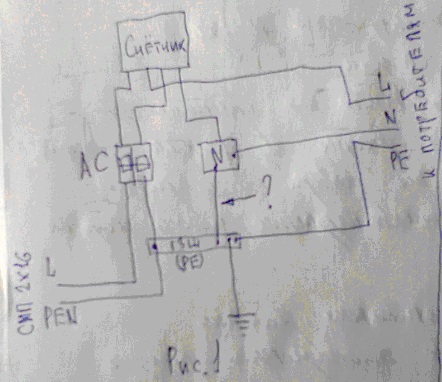 Счётчик
L
N
PE
к потребителям
АС
N
?
ГЗШ
(PE)
L
PEN
СИП 2х16
Рис. 1